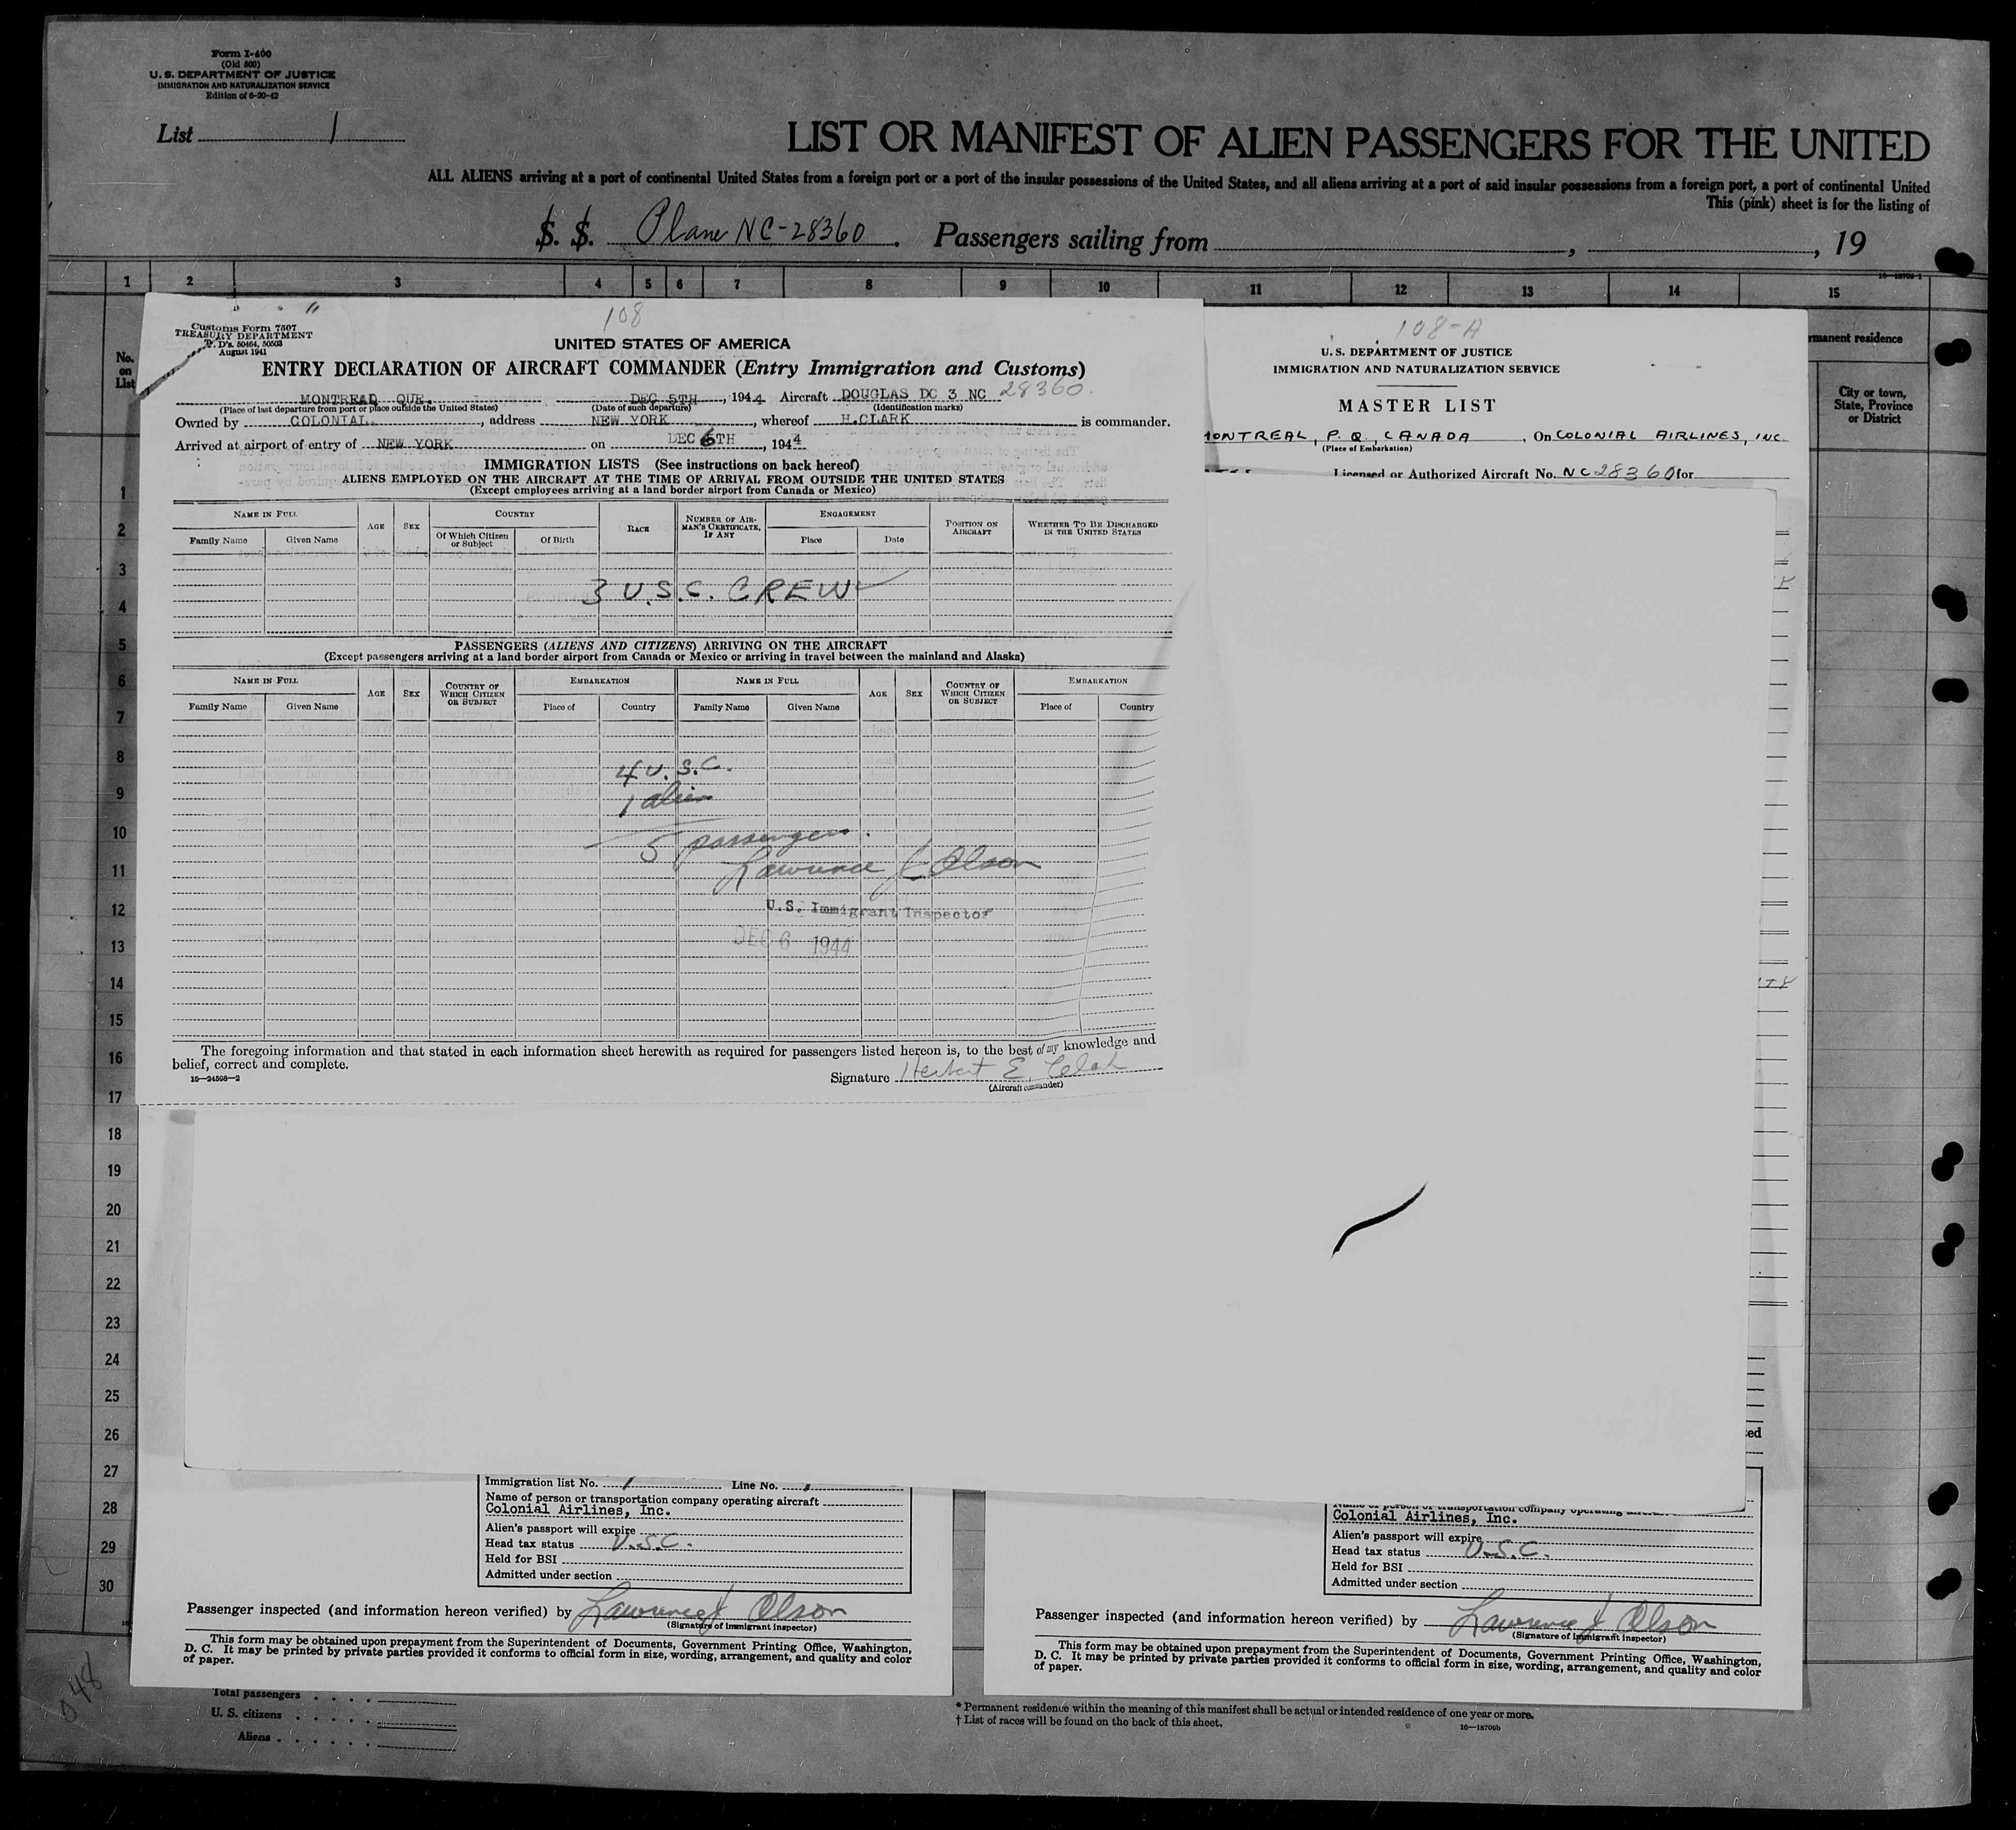 Form I-400
(Old 500)
U. S. DEPARTMENT OF JUSTICE
IMMIGRATION AND NATURALIZATION SERVICE
Edition of 6-20-42
List 1
LIST OR MANIFEST OF ALIEN PASSENGERS FOR THE UNITED
ALL ALIENS arriving at a port of continental United States from a foreign port or a port of the insular possessions of the United States, and all aliens arriving at a port of said insular possessions from a foreign port, a port of continental United
This (pink) sheet is for the listing of
S. S. Plane NC-28360. Passengers sailing from , , 19
1 2 3 4 5 6 7 8 9 10 11 12 13 14 15
No. on List
108
Customs Form 7507
TREASURY DEPARTMENT
T. D's. 50464, 50503
August 1941
UNITED STATES OF AMERICA
ENTRY DECLARATION OF AIRCRAFT COMMANDER (Entry Immigration and Customs)
MONTREAL QUE. DEC 5TH, 1944 Aircraft DOUGLAS DC 3 NC 28360
(Place of last departure from port or place outside the United States) (Date of such departure) (Identification marks)
Owned by COLONIAL, address NEW YORK, whereof H.CLARK is commander.
Arrived at airport of entry of NEW YORK on DEC 6TH, 1944
IMMIGRATION LISTS (See instructions on back hereof)
ALIENS EMPLOYED ON THE AIRCRAFT AT THE TIME OF ARRIVAL FROM OUTSIDE THE UNITED STATES
(Except employees arriving at a land border airport from Canada or Mexico)
NAME IN FULL AGE SEX COUNTRY RACE NUMBER OF AIRMAN'S CERTIFICATE, IF ANY ENGAGEMENT POSITION ON AIRCRAFT WHETHER TO BE DISCHARGED IN THE UNITED STATES
Family Name Given Name Of Which Citizen or Subject Of Birth Place Date
3 U.S.C. CREW
PASSENGERS (ALIENS AND CITIZENS) ARRIVING ON THE AIRCRAFT
(Except passengers arriving at a land border airport from Canada or Mexico or arriving in travel between the mainland and Alaska)
NAME IN FULL AGE SEX COUNTRY OF WHICH CITIZEN OR SUBJECT EMBARKATION NAME IN FULL AGE SEX COUNTRY OF WHICH CITIZEN OR SUBJECT EMBARKATION
Family Name Given Name Place of Country Family Name Given Name Place of Country
4 U.S.C.
1 alien
5 passengers.
Lawrence J Olson
U.S. Immigrant Inspector
DEC 6 1944
The foregoing information and that stated in each information sheet herewith as required for passengers listed hereon is, to the best of my knowledge and
belief, correct and complete.
16-24598-2
Signature
(Aircraft commander)
108-A
U. S. DEPARTMENT OF JUSTICE
IMMIGRATION AND NATURALIZATION SERVICE
MASTER LIST
MONTREAL, P. Q., CANADA, On COLONIAL AIRLINES, INC.
(Place of Embarkation)
Licensed or Authorized Aircraft No. NC28360 for
rmanent residence
City or town, State, Province or District
1
2
3
4
5
6
7
8
9
10
11
12
13
14
15
16
17
18
19
20
21
22
23
24
25
26
27
28
29
30
ed
Immigration list No. 1 Line No. 1
Name of person or transportation company operating aircraft
Colonial Airlines, Inc.
Alien's passport will expire
Head tax status U.S.C.
Held for BSI
Admitted under section
Passenger inspected (and information hereon verified) by Lawrence J Olson
(Signature of Immigrant Inspector)
This form may be obtained upon prepayment from the Superintendent of Documents, Government Printing Office, Washington,
D. C. It may be printed by private parties provided it conforms to official form in size, wording, arrangement, and quality and color
of paper.
Name of person or transportation company operating aircraft
Colonial Airlines, Inc.
Alien's passport will expire
Head tax status U.S.C.
Held for BSI
Admitted under section
Passenger inspected (and information hereon verified) by Lawrence J Olson
(Signature of Immigrant Inspector)
This form may be obtained upon prepayment from the Superintendent of Documents, Government Printing Office, Washington,
D. C. It may be printed by private parties provided it conforms to official form in size, wording, arrangement, and quality and color
of paper.
Total passengers
U. S. citizens
Aliens
* Permanent residence within the meaning of this manifest shall be actual or intended residence of one year or more.
† List of races will be found on the back of this sheet.
16-18709b
048